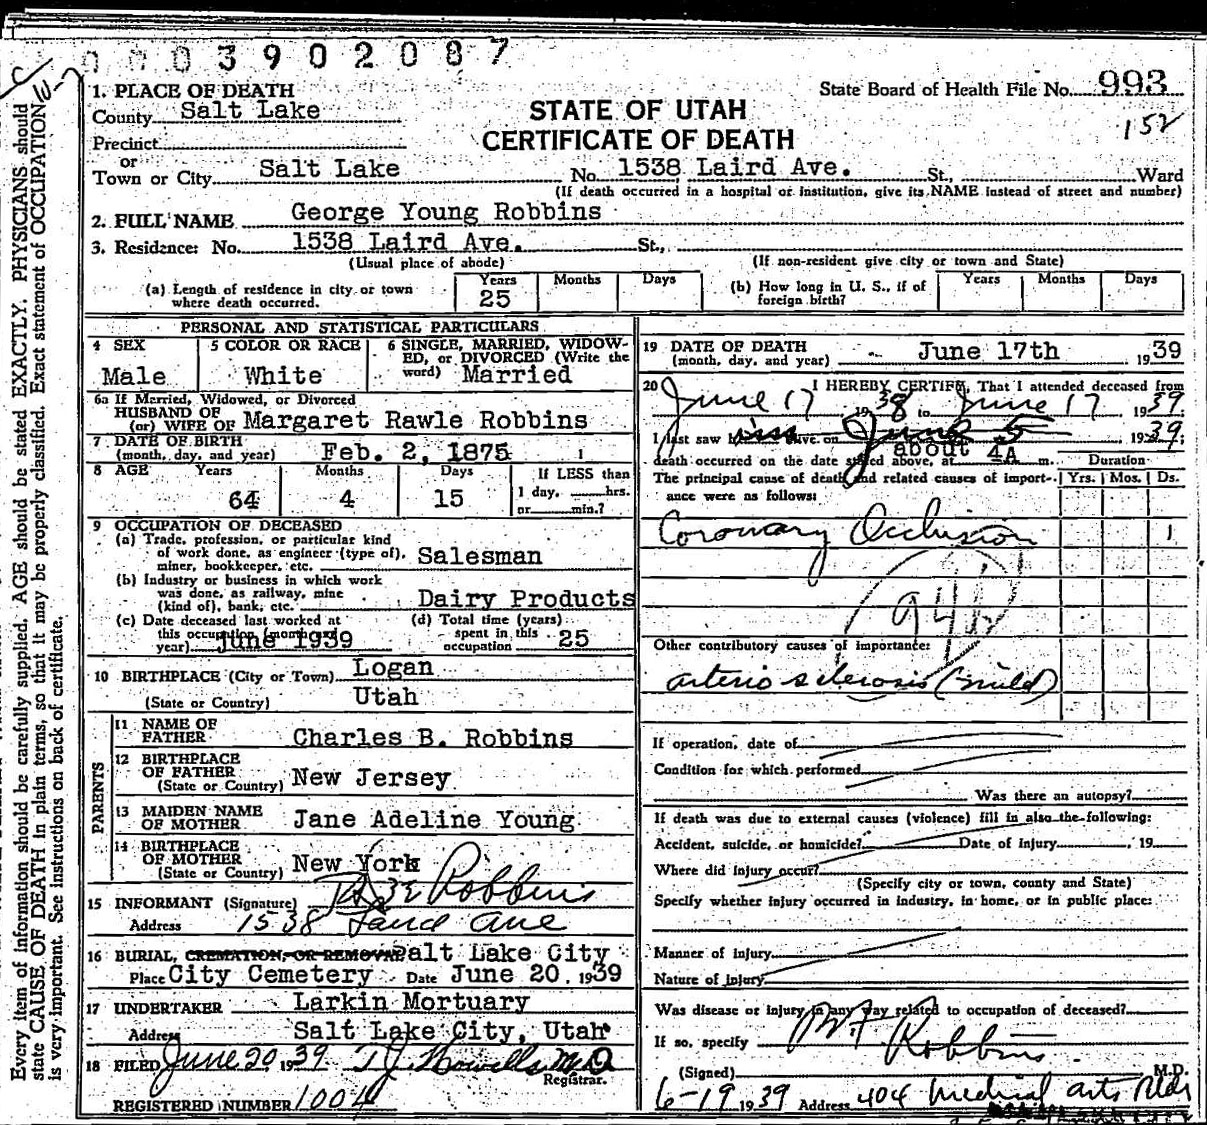 0003902087
1. PLACE OF DEATH
State Board of Health File No. 993
County Salt Lake
STATE OF UTAH
152
Precinct
CERTIFICATE OF DEATH
or
Town or City Salt Lake No. 1538 Laird Ave. St., Ward
(If death occurred in a hospital or institution, give its NAME instead of street and number)
2. FULL NAME George Young Robbins
3. Residence: No. 1538 Laird Ave. St.,
(Usual place of abode) (If non-resident give city or town and State)
(a) Length of residence in city or town where death occurred. Years 25 Months Days (b) How long in U. S., if of foreign birth? Years Months Days
PERSONAL AND STATISTICAL PARTICULARS
4 SEX 5 COLOR OR RACE 6 SINGLE, MARRIED, WIDOW-
ED, or DIVORCED (Write the
word) Married
Male White
6a If Married, Widowed, or Divorced
HUSBAND OF
(or) WIFE OF Margaret Rawle Robbins
7 DATE OF BIRTH
(month, day, and year) Feb. 2, 1875
8 AGE Years Months Days If LESS than
64 4 15 1 day, hrs.
or min.?
9 OCCUPATION OF DECEASED
(a) Trade, profession, or particular kind
of work done, as engineer (type of),
miner, bookkeeper, etc. Salesman
(b) Industry or business in which work
was done, as railway, mine
(kind of), bank, etc. Dairy Products
(c) Date deceased last worked at
this occupation (month and
year) June 1939
(d) Total time (years)
spent in this
occupation 25
10 BIRTHPLACE (City or Town) Logan
(State or Country) Utah
PARENTS
11 NAME OF
FATHER Charles B. Robbins
12 BIRTHPLACE
OF FATHER
(State or Country) New Jersey
13 MAIDEN NAME
OF MOTHER Jane Adeline Young
14 BIRTHPLACE
OF MOTHER
(State or Country) New York
15 INFORMANT (Signature) Robbins
Address 1538 Laird Ave
16 BURIAL, CREMATION, OR REMOVAL Salt Lake City
Place City Cemetery Date June 20, 1939
17 UNDERTAKER Larkin Mortuary
Address Salt Lake City, Utah
18 FILED June 20, 1939 T J Howells M.D
Registrar.
REGISTERED NUMBER 1004
19 DATE OF DEATH
(month, day, and year) June 17th 1939
20 I HEREBY CERTIFY, That I attended deceased from
June 17 1938 to June 17 1939
I last saw alive on June 5 1939;
death occurred on the date stated above, at about 4A m. Duration
The principal cause of death and related causes of import- Yrs. Mos. Ds.
ance were as follows:
Coronary Occlusion 1
94b
Other contributory causes of importance:
arterio sclerosis (mild)
If operation, date of
Condition for which performed
Was there an autopsy?
If death was due to external causes (violence) fill in also the following:
Accident, suicide, or homicide? Date of injury , 19
Where did injury occur?
(Specify city or town, county and State)
Specify whether injury occurred in industry, in home, or in public place:
Manner of injury
Nature of injury
Was disease or injury in any way related to occupation of deceased?
If so, specify
Robbins
(Signed) M.D.
6-19 1939 Address 404 Medical Arts Bldg
Every item of information should be carefully supplied. AGE should be stated EXACTLY. PHYSICIANS should
state CAUSE OF DEATH in plain terms, so that it may be properly classified. Exact statement of OCCUPATION
is very important. See instructions on back of certificate.